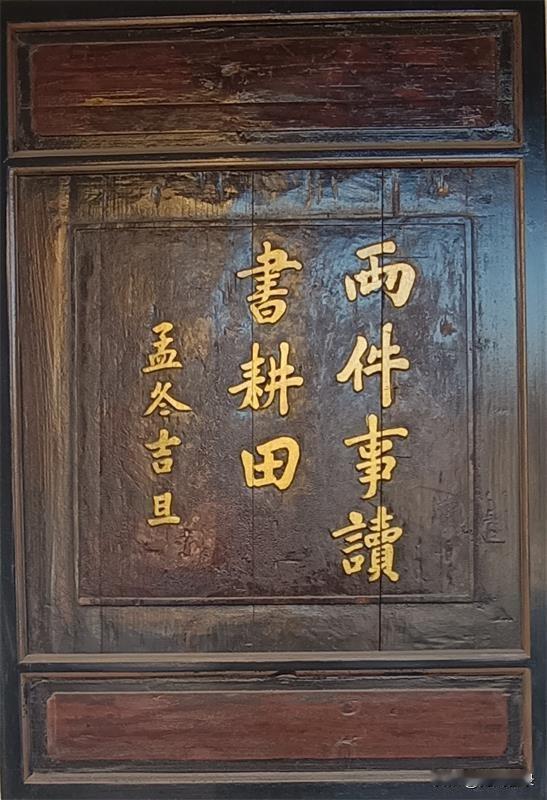 両件事讀
書耕田
孟冬吉旦